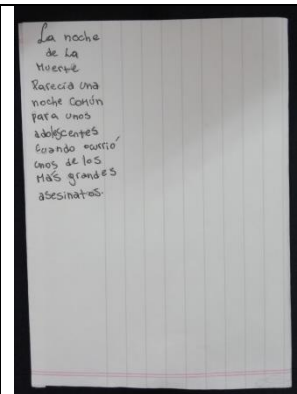 La noche
de La
Muerte
Parecía una
noche común
para unos
adolescentes
cuando ocurrió
unos de los
Más grandes
asesinatos.